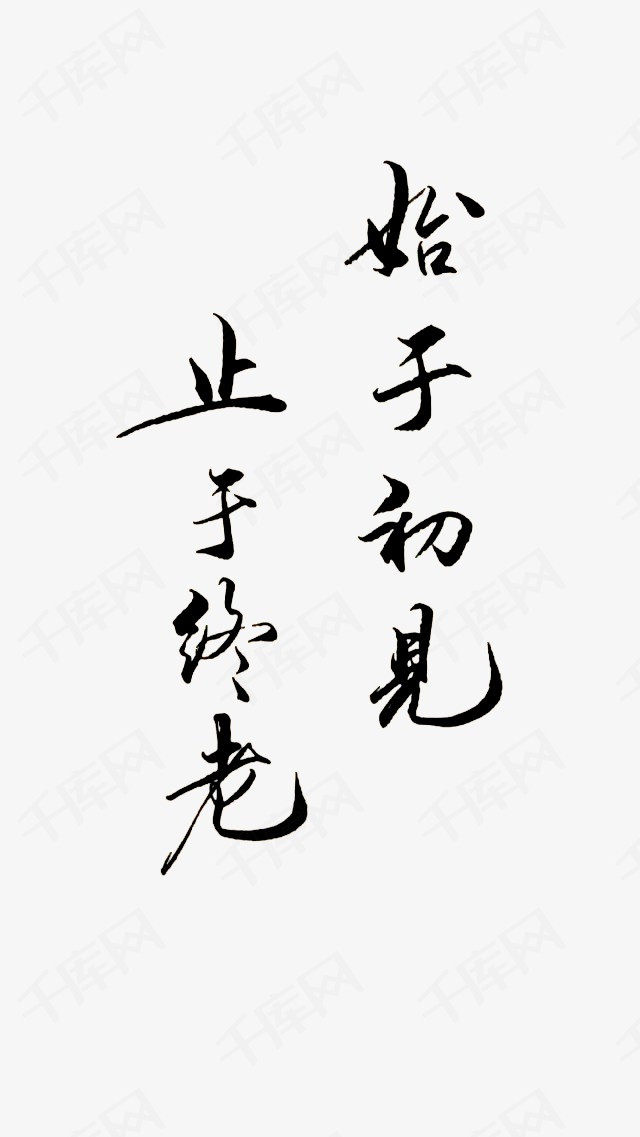 始于初見
止于终老
千库网